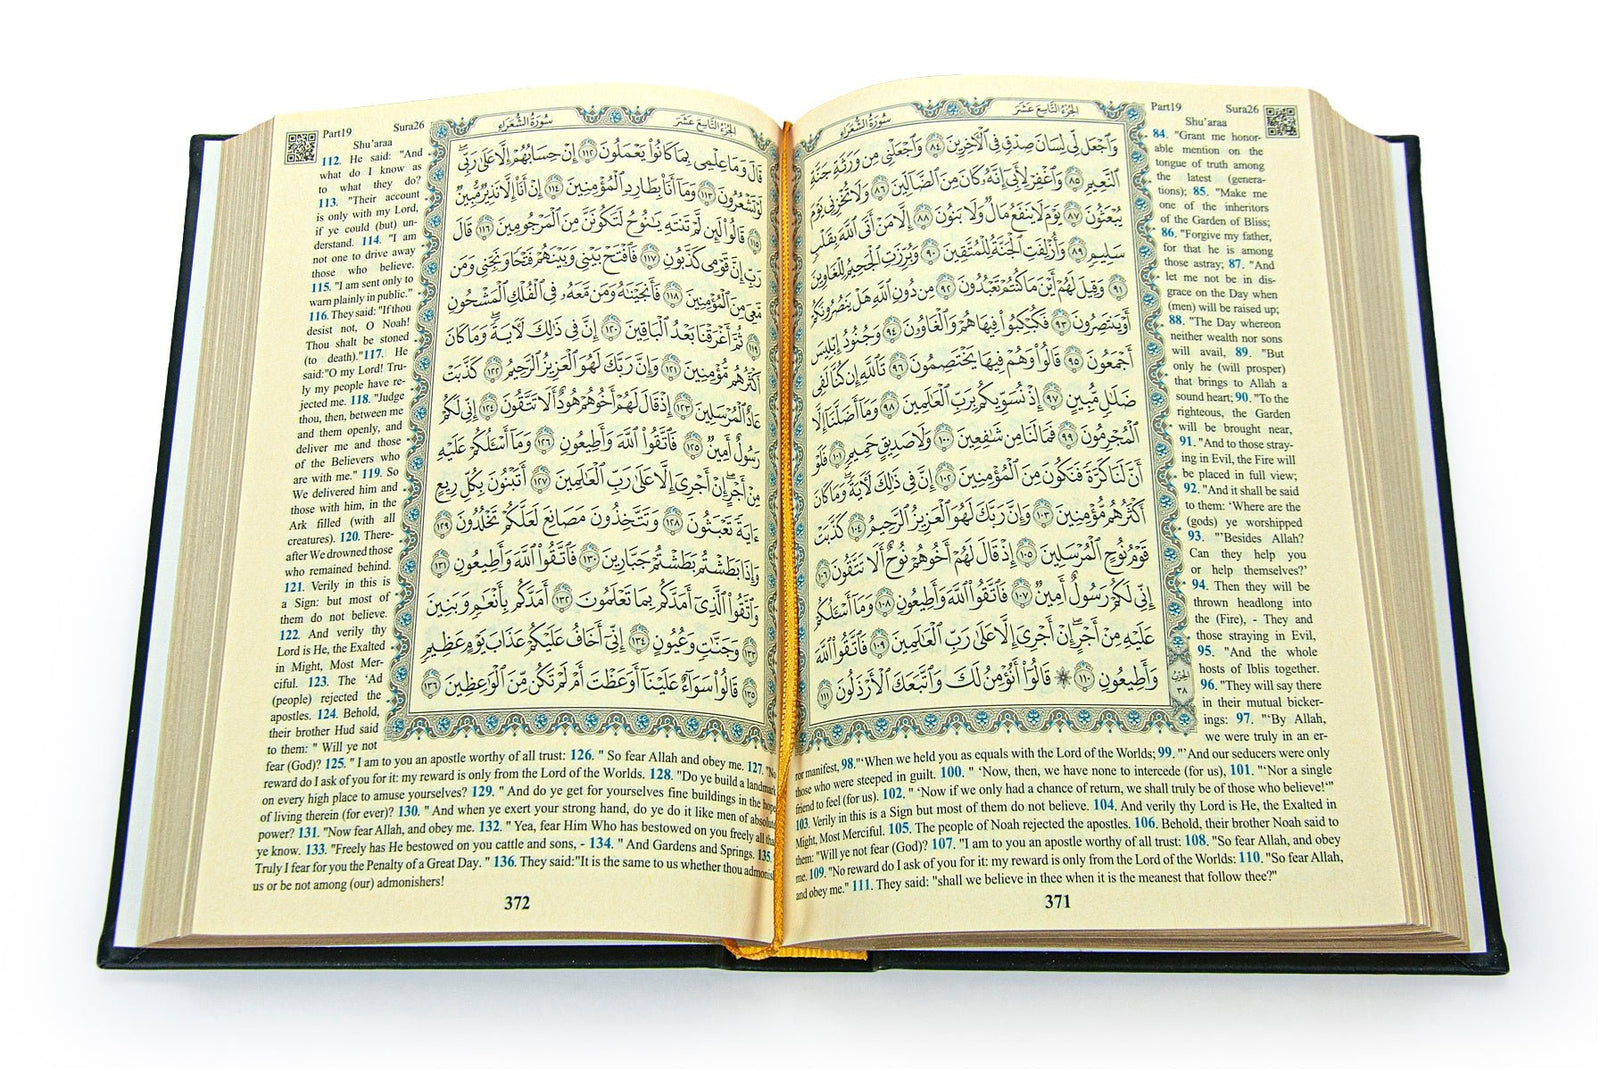 الجُزءُ التَّاسِعَ عَشَرَ
سُورَةُ الشُّعَرَاءِ
وَٱجْعَل لِّي لِسَانَ صِدْقٍ فِي ٱلْأٓخِرِينَ ٨٤ وَٱجْعَلْنِي مِن وَرَثَةِ جَنَّةِ
ٱلنَّعِيمِ ٨٥ وَٱغْفِرْ لِأَبِيٓ إِنَّهُۥ كَانَ مِنَ ٱلضَّآلِّينَ ٨٦ وَلَا تُخْزِنِي يَوْمَ
يُبْعَثُونَ ٨٧ يَوْمَ لَا يَنفَعُ مَالٌ وَلَا بَنُونَ ٨٨ إِلَّا مَنْ أَتَى ٱللَّهَ بِقَلْبٍ
سَلِيمٍ ٨٩ وَأُزْلِفَتِ ٱلْجَنَّةُ لِلْمُتَّقِينَ ٩٠ وَبُرِّزَتِ ٱلْجَحِيمُ لِلْغَاوِينَ
٩١ وَقِيلَ لَهُمْ أَيْنَ مَا كُنتُمْ تَعْبُدُونَ ٩٢ مِن دُونِ ٱللَّهِ هَلْ يَنصُرُونَكُمْ
أَوْ يَنتَصِرُونَ ٩٣ فَكُبْكِبُوا۟ فِيهَا هُمْ وَٱلْغَاوُۥنَ ٩٤ وَجُنُودُ إِبْلِيسَ
أَجْمَعُونَ ٩٥ قَالُوا۟ وَهُمْ فِيهَا يَخْتَصِمُونَ ٩٦ تَٱللَّهِ إِن كُنَّا لَفِي
ضَلَٰلٍ مُّبِينٍ ٩٧ إِذْ نُسَوِّيكُم بِرَبِّ ٱلْعَٰلَمِينَ ٩٨ وَمَآ أَضَلَّنَآ إِلَّا
ٱلْمُجْرِمُونَ ٩٩ فَمَا لَنَا مِن شَٰفِعِينَ ١٠٠ وَلَا صَدِيقٍ حَمِيمٍ ١٠١ فَلَوْ
أَنَّ لَنَا كَرَّةً فَنَكُونَ مِنَ ٱلْمُؤْمِنِينَ ١٠٢ إِنَّ فِي ذَٰلِكَ لَأٓيَةً وَمَا كَانَ
أَكْثَرُهُم مُّؤْمِنِينَ ١٠٣ وَإِنَّ رَبَّكَ لَهُوَ ٱلْعَزِيزُ ٱلرَّحِيمُ ١٠٤ كَذَّبَتْ
قَوْمُ نُوحٍ ٱلْمُرْسَلِينَ ١٠٥ إِذْ قَالَ لَهُمْ أَخُوهُمْ نُوحٌ أَلَا تَتَّقُونَ ١٠٦
إِنِّي لَكُمْ رَسُولٌ أَمِينٌ ١٠٧ فَٱتَّقُوا۟ ٱللَّهَ وَأَطِيعُونِ ١٠٨ وَمَآ أَسْـَٔلُكُمْ
عَلَيْهِ مِنْ أَجْرٍ إِنْ أَجْرِيَ إِلَّا عَلَىٰ رَبِّ ٱلْعَٰلَمِينَ ١٠٩ فَٱتَّقُوا۟ ٱللَّهَ
وَأَطِيعُونِ ١١٠ ۞ قَالُوٓا۟ أَنُؤْمِنُ لَكَ وَٱتَّبَعَكَ ٱلْأَرْذَلُونَ ١١١
الحزب
٣٨
Part19 Sura26
Shu'araa
84. "Grant me honor-
able mention on the
tongue of truth among
the latest (genera-
tions); 85. "Make me
one of the inheritors
of the Garden of Bliss;
86. "Forgive my father,
for that he is among
those astray; 87. "And
let me not be in dis-
grace on the Day when
(men) will be raised up;
88. "The Day whereon
neither wealth nor sons
will avail, 89. "But
only he (will prosper)
that brings to Allah a
sound heart; 90. "To the
righteous, the Garden
will be brought near,
91. "And to those stray-
ing in Evil, the Fire will
be placed in full view;
92. "And it shall be said
to them: 'Where are the
(gods) ye worshipped
93. "'Besides Allah?
Can they help you
or help themselves?'
94. Then they will be
thrown headlong into
the (Fire), - They and
those straying in Evil,
95. "And the whole
hosts of Iblis together.
96. "They will say there
in their mutual bicker-
ings: 97. "'By Allah,
we were truly in an er-
ror manifest, 98."'When we held you as equals with the Lord of the Worlds; 99. "'And our seducers were only
those who were steeped in guilt. 100. " 'Now, then, we have none to intercede (for us), 101. "'Nor a single
friend to feel (for us). 102. " 'Now if we only had a chance of return, we shall truly be of those who believe!'"
103. Verily in this is a Sign but most of them do not believe. 104. And verily thy Lord is He, the Exalted in
Might, Most Merciful. 105. The people of Noah rejected the apostles. 106. Behold, their brother Noah said to
them: "Will ye not fear (God)? 107. "I am to you an apostle worthy of all trust: 108. "So fear Allah, and obey
me. 109. "No reward do I ask of you for it: my reward is only from the Lord of the Worlds: 110. "So fear Allah,
and obey me." 111. They said: "shall we believe in thee when it is the meanest that follow thee?"
371
الجُزءُ التَّاسِعَ عَشَرَ
سُورَةُ الشُّعَرَاءِ
قَالَ وَمَا عِلْمِي بِمَا كَانُوا۟ يَعْمَلُونَ ١١٢ إِنْ حِسَابُهُمْ إِلَّا عَلَىٰ رَبِّي
لَوْ تَشْعُرُونَ ١١٣ وَمَآ أَنَا۠ بِطَارِدِ ٱلْمُؤْمِنِينَ ١١٤ إِنْ أَنَا۠ إِلَّا نَذِيرٌ مُّبِينٌ
١١٥ قَالُوا۟ لَئِن لَّمْ تَنتَهِ يَٰنُوحُ لَتَكُونَنَّ مِنَ ٱلْمَرْجُومِينَ ١١٦ قَالَ
رَبِّ إِنَّ قَوْمِي كَذَّبُونِ ١١٧ فَٱفْتَحْ بَيْنِي وَبَيْنَهُمْ فَتْحًا وَنَجِّنِي وَمَن
مَّعِيَ مِنَ ٱلْمُؤْمِنِينَ ١١٨ فَأَنجَيْنَٰهُ وَمَن مَّعَهُۥ فِي ٱلْفُلْكِ ٱلْمَشْحُونِ
١١٩ ثُمَّ أَغْرَقْنَا بَعْدُ ٱلْبَاقِينَ ١٢٠ إِنَّ فِي ذَٰلِكَ لَأٓيَةً وَمَا كَانَ
أَكْثَرُهُم مُّؤْمِنِينَ ١٢١ وَإِنَّ رَبَّكَ لَهُوَ ٱلْعَزِيزُ ٱلرَّحِيمُ ١٢٢ كَذَّبَتْ
عَادٌ ٱلْمُرْسَلِينَ ١٢٣ إِذْ قَالَ لَهُمْ أَخُوهُمْ هُودٌ أَلَا تَتَّقُونَ ١٢٤ إِنِّي لَكُمْ
رَسُولٌ أَمِينٌ ١٢٥ فَٱتَّقُوا۟ ٱللَّهَ وَأَطِيعُونِ ١٢٦ وَمَآ أَسْـَٔلُكُمْ عَلَيْهِ
مِنْ أَجْرٍ إِنْ أَجْرِيَ إِلَّا عَلَىٰ رَبِّ ٱلْعَٰلَمِينَ ١٢٧ أَتَبْنُونَ بِكُلِّ رِيعٍ
ءَايَةً تَعْبَثُونَ ١٢٨ وَتَتَّخِذُونَ مَصَانِعَ لَعَلَّكُمْ تَخْلُدُونَ ١٢٩
وَإِذَا بَطَشْتُم بَطَشْتُمْ جَبَّارِينَ ١٣٠ فَٱتَّقُوا۟ ٱللَّهَ وَأَطِيعُونِ ١٣١
وَٱتَّقُوا۟ ٱلَّذِيٓ أَمَدَّكُم بِمَا تَعْلَمُونَ ١٣٢ أَمَدَّكُم بِأَنْعَٰمٍ وَبَنِينَ
١٣٣ وَجَنَّٰتٍ وَعُيُونٍ ١٣٤ إِنِّيٓ أَخَافُ عَلَيْكُمْ عَذَابَ يَوْمٍ عَظِيمٍ
١٣٥ قَالُوا۟ سَوَآءٌ عَلَيْنَآ أَوَعَظْتَ أَمْ لَمْ تَكُن مِّنَ ٱلْوَٰعِظِينَ ١٣٦
Part19 Sura26
Shu'araa
112. He said: "And
what do I know as
to what they do?
113. "Their account
is only with my Lord,
if ye could (but) un-
derstand. 114. "I am
not one to drive away
those who believe.
115. "I am sent only to
warn plainly in public."
116. They said: "If thou
desist not, O Noah!
Thou shalt be stoned
(to death)."117. He
said:"O my Lord! Tru-
ly my people have re-
jected me. 118. "Judge
thou, then, between me
and them openly, and
deliver me and those
of the Believers who
are with me." 119. So
We delivered him and
those with him, in the
Ark filled (with all
creatures). 120. There-
after We drowned those
who remained behind.
121. Verily in this is
a Sign: but most of
them do not believe.
122. And verily thy
Lord is He, the Exalted
in Might, Most Mer-
ciful. 123. The 'Ad
(people) rejected the
apostles. 124. Behold,
their brother Hud said
to them: " Will ye not
fear (God)? 125. " I am to you an apostle worthy of all trust: 126. " So fear Allah and obey me. 127. "No
reward do I ask of you for it: my reward is only from the Lord of the Worlds. 128. "Do ye build a landmark
on every high place to amuse yourselves? 129. " And do ye get for yourselves fine buildings in the hope
of living therein (for ever)? 130. " And when ye exert your strong hand, do ye do it like men of absolute
power? 131. "Now fear Allah, and obey me. 132. " Yea, fear Him Who has bestowed on you freely all that
ye know. 133. "Freely has He bestowed on you cattle and sons, - 134. " And Gardens and Springs. 135. "
Truly I fear for you the Penalty of a Great Day. " 136. They said:"It is the same to us whether thou admonish
us or be not among (our) admonishers!
372